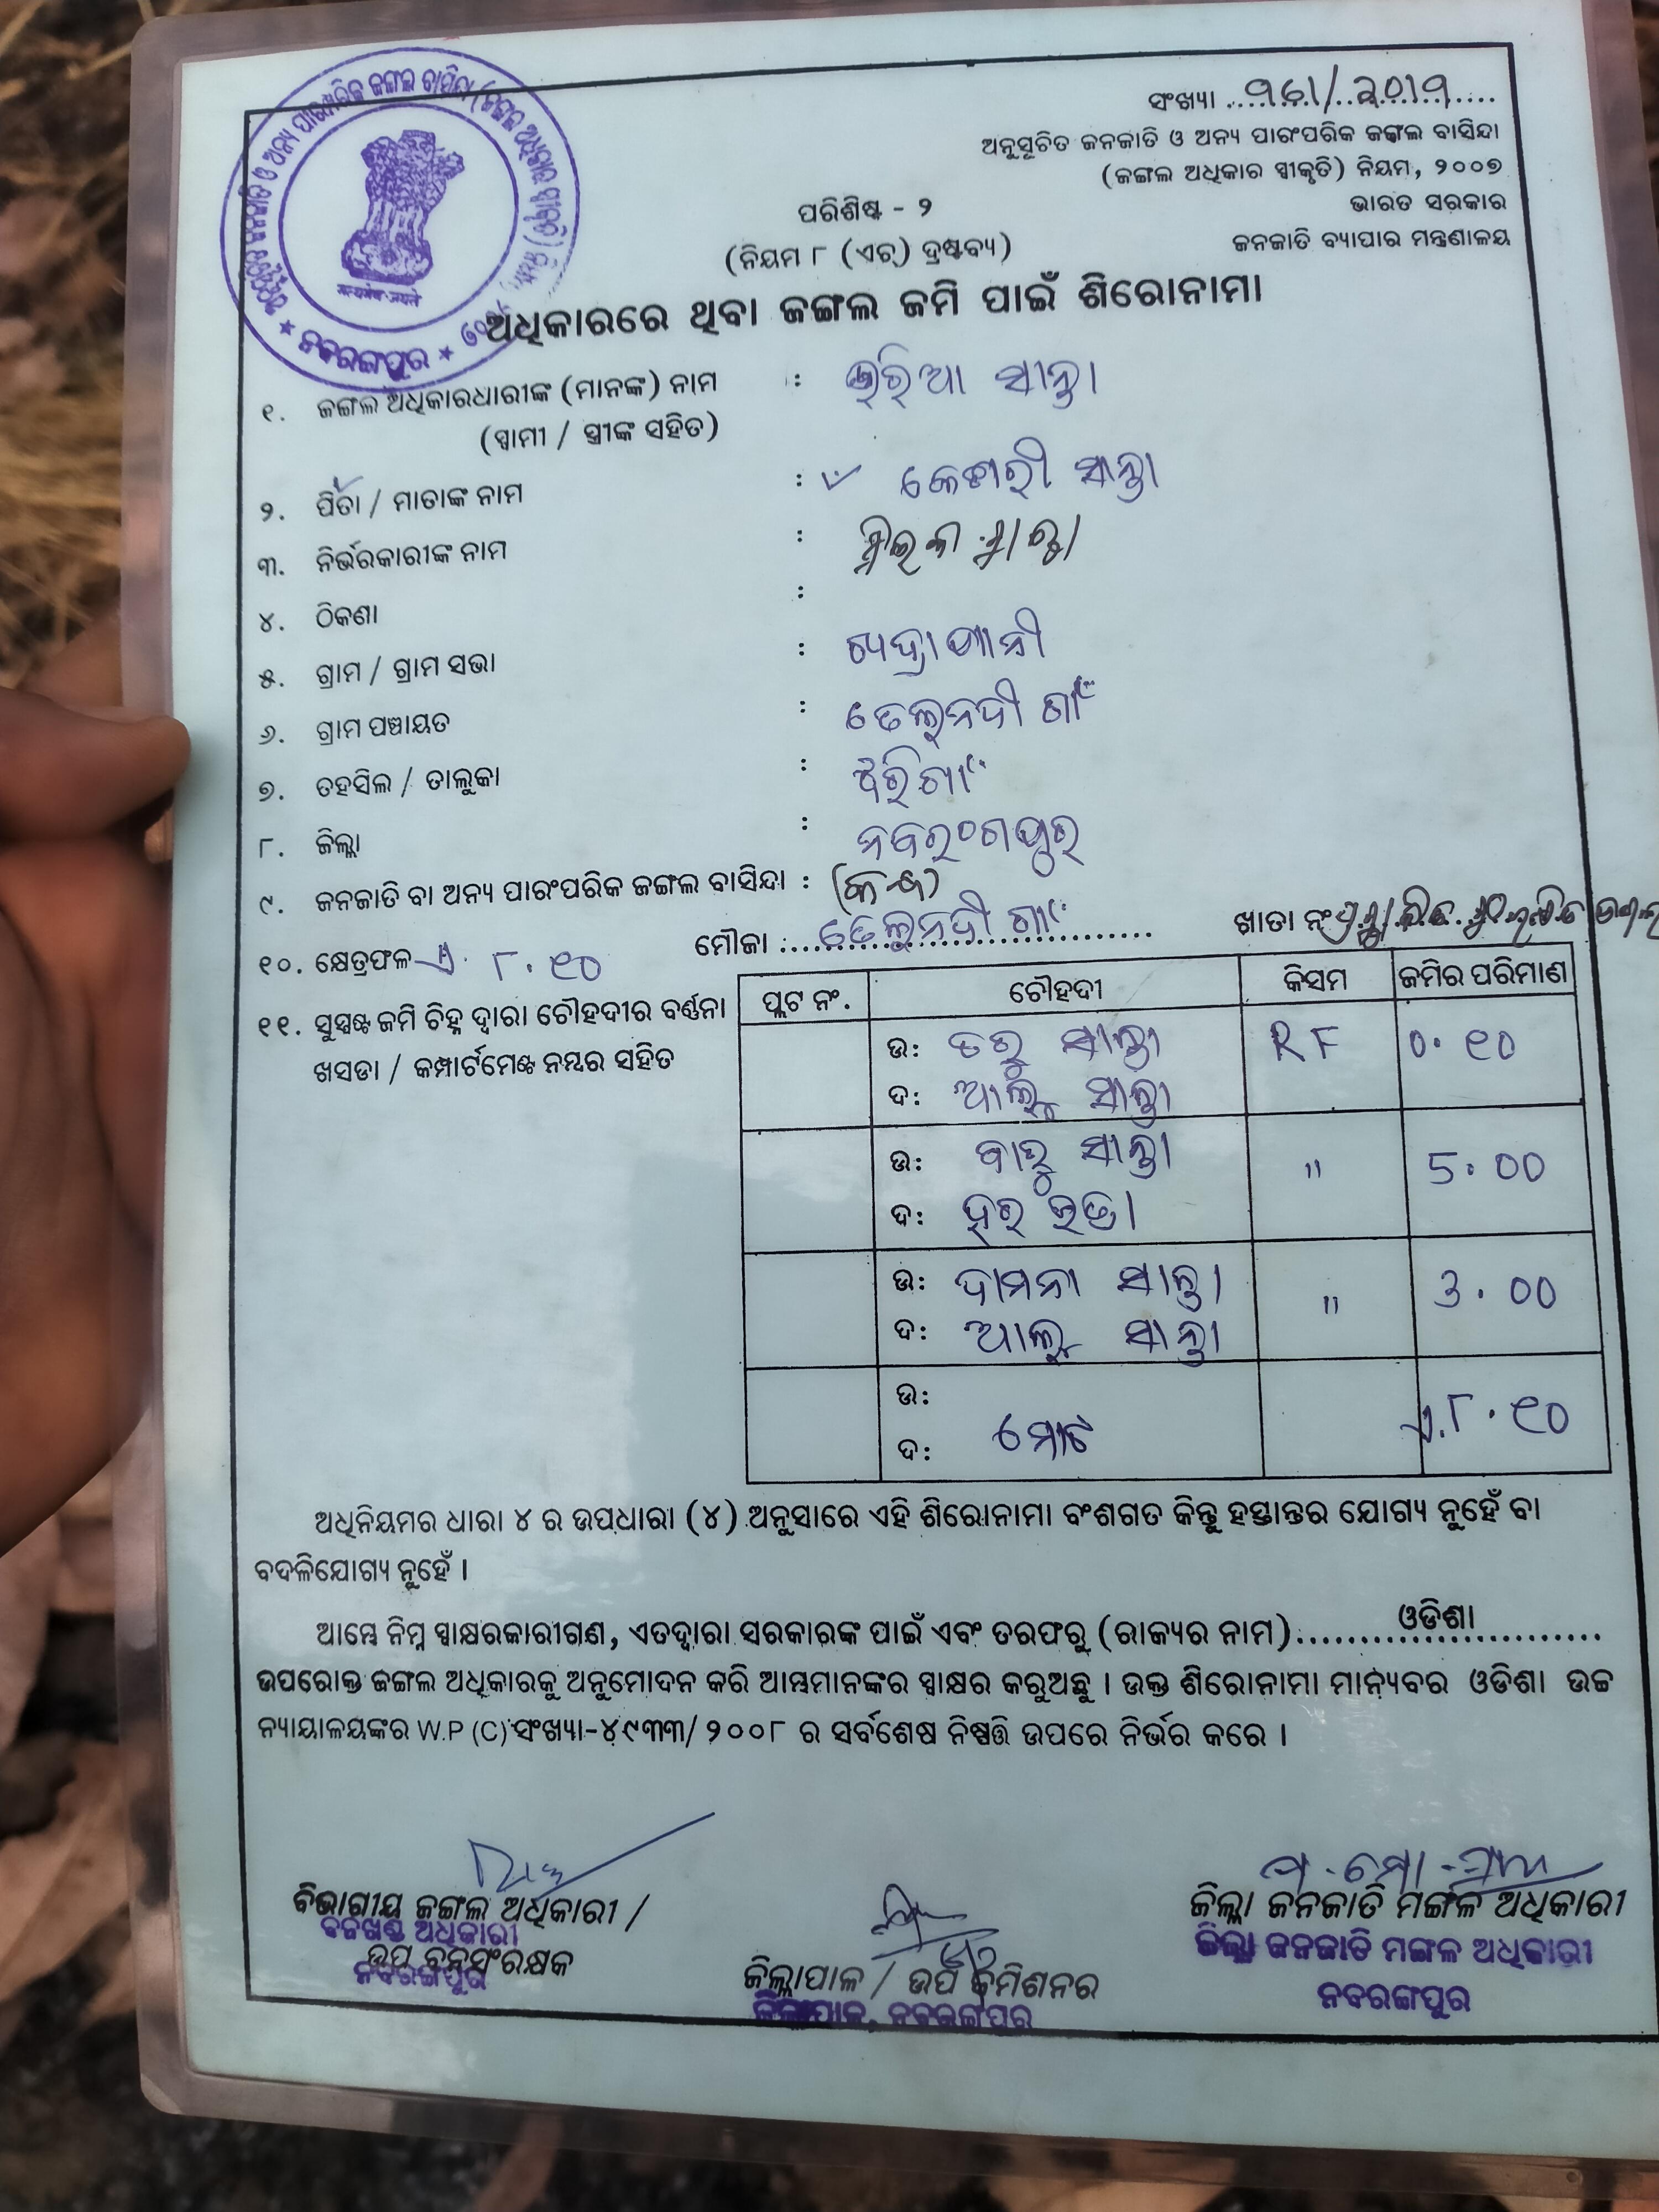 ସଂଖ୍ୟା
ଅନୁସୂଚିତ ଜନଜାତି ଓ ଅନ୍ୟ ପାରଂପରିକ ଜଙ୍ଗଲ ବାସିନ୍ଦା
(ଜଙ୍ଗଲ ଅଧିକାର ସ୍ୱୀକୃତି) ନିୟମ, ୨୦୦୭
ଭାରତ ସରକାର
ଜନଜାତି ବ୍ୟାପାର ମନ୍ତ୍ରଣାଳୟ
ପରିଶିଷ୍ଟ - ୨
(ନିୟମ ୮ (ଏଚ୍) ଦ୍ରଷ୍ଟବ୍ୟ)
ନବରଙ୍ଗପୁର
ଅଧିକାରରେ ଥିବା ଜଙ୍ଗଲ ଜମି ପାଇଁ ଶିରୋନାମା
୧. ଜଙ୍ଗଲ ଅଧିକାରଧାରୀଙ୍କ (ମାନଙ୍କ) ନାମ :
(ସ୍ୱାମୀ / ସ୍ତ୍ରୀଙ୍କ ସହିତ)
୨. ପିତା / ମାତାଙ୍କ ନାମ : କେଶରୀ ସାନ୍ତା
୩. ନିର୍ଭରକାରୀଙ୍କ ନାମ :
୪. ଠିକଣା :
୫. ଗ୍ରାମ / ଗ୍ରାମ ସଭା :
୬. ଗ୍ରାମ ପଞ୍ଚାୟତ : ତେଲନଦୀ ଗାଁ
୭. ତହସିଲ / ତାଲୁକା : ଝରିଗାଁ
୮. ଜିଲ୍ଲା : ନବରଂଗପୁର
୯. ଜନଜାତି ବା ଅନ୍ୟ ପାରଂପରିକ ଜଙ୍ଗଲ ବାସିନ୍ଦା : (କନ୍ଧ)
ମୌଜା : ତେଲନଦୀ ଗାଁ ଖାତା ନଂ
୧୦. କ୍ଷେତ୍ରଫଳ ଏ. ୮.୧୦
୧୧. ସୁସ୍ପଷ୍ଟ ଜମି ଚିହ୍ନ ଦ୍ୱାରା ଚୌହଦୀର ବର୍ଣ୍ଣନା
ଖସଡା / କମ୍ପାର୍ଟମେଣ୍ଟ ନମ୍ବର ସହିତ
ପ୍ଲଟ ନଂ. ଚୌହଦୀ କିସମ ଜମିର ପରିମାଣ
ଉ: ସାନ୍ତା RF ୦.୧୦
ଦ: ସାନ୍ତା
ଉ: ସାନ୍ତା " 5.00
ଦ:
ଉ: ଦାମନା ସାନ୍ତା " 3.00
ଦ: ସାନ୍ତା
ଉ:
ଦ: ମୋଟ ଏ.୮.୧୦
ଅଧିନିୟମର ଧାରା ୪ ର ଉପଧାରା (୪) ଅନୁସାରେ ଏହି ଶିରୋନାମା ବଂଶଗତ କିନ୍ତୁ ହସ୍ତାନ୍ତର ଯୋଗ୍ୟ ନୁହେଁ ବା
ବଦଳିଯୋଗ୍ୟ ନୁହେଁ ।
ଆମ୍ଭେ ନିମ୍ନ ସ୍ୱାକ୍ଷରକାରୀଗଣ, ଏତଦ୍ଦ୍ୱାରା ସରକାରଙ୍କ ପାଇଁ ଏବଂ ତରଫରୁ (ରାଜ୍ୟର ନାମ) ଓଡିଶା
ଉପରୋକ୍ତ ଜଙ୍ଗଲ ଅଧିକାରକୁ ଅନୁମୋଦନ କରି ଆମ୍ଭମାନଙ୍କର ସ୍ୱାକ୍ଷର କରୁଅଛୁ । ଉକ୍ତ ଶିରୋନାମା ମାନ୍ୟବର ଓଡିଶା ଉଚ୍ଚ
ନ୍ୟାୟାଳୟଙ୍କର W.P (C) ସଂଖ୍ୟା-୪୯୩୩/୨୦୦୮ ର ସର୍ବଶେଷ ନିଷ୍ପତ୍ତି ଉପରେ ନିର୍ଭର କରେ ।
ବିଭାଗୀୟ ଜଙ୍ଗଲ ଅଧିକାରୀ /
ବନଖଣ୍ଡ ଅଧିକାରୀ
ଉପ ବନସଂରକ୍ଷକ
ନବରଙ୍ଗପୁର
ଜିଲ୍ଲାପାଳ / ଉପ କମିଶନର
ଜିଲ୍ଲାପାଳ, ନବରଙ୍ଗପୁର
ଜିଲ୍ଲା ଜନଜାତି ମଙ୍ଗଳ ଅଧିକାରୀ
ଜିଲ୍ଲା ଜନଜାତି ମଙ୍ଗଳ ଅଧିକାରୀ
ନବରଙ୍ଗପୁର